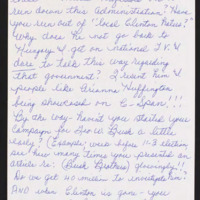 run down this Administration? Have
you run out of "local Clinton Haters"?
Why does he not go back to
Hungary & get on national T.V. &
dare to talk this way regarding
that government? I resent him &
people like Arianna Huffington
being showcased on C-Span!!!
By the way - haven't you started your
Campaign for Geo W. Bush a little
early? (Example) were before 11-3 election
 how many times you presented an
article re: (Bush Brothers)
Do we get 40 million to investigate him?
AND when Clinton is gone - you